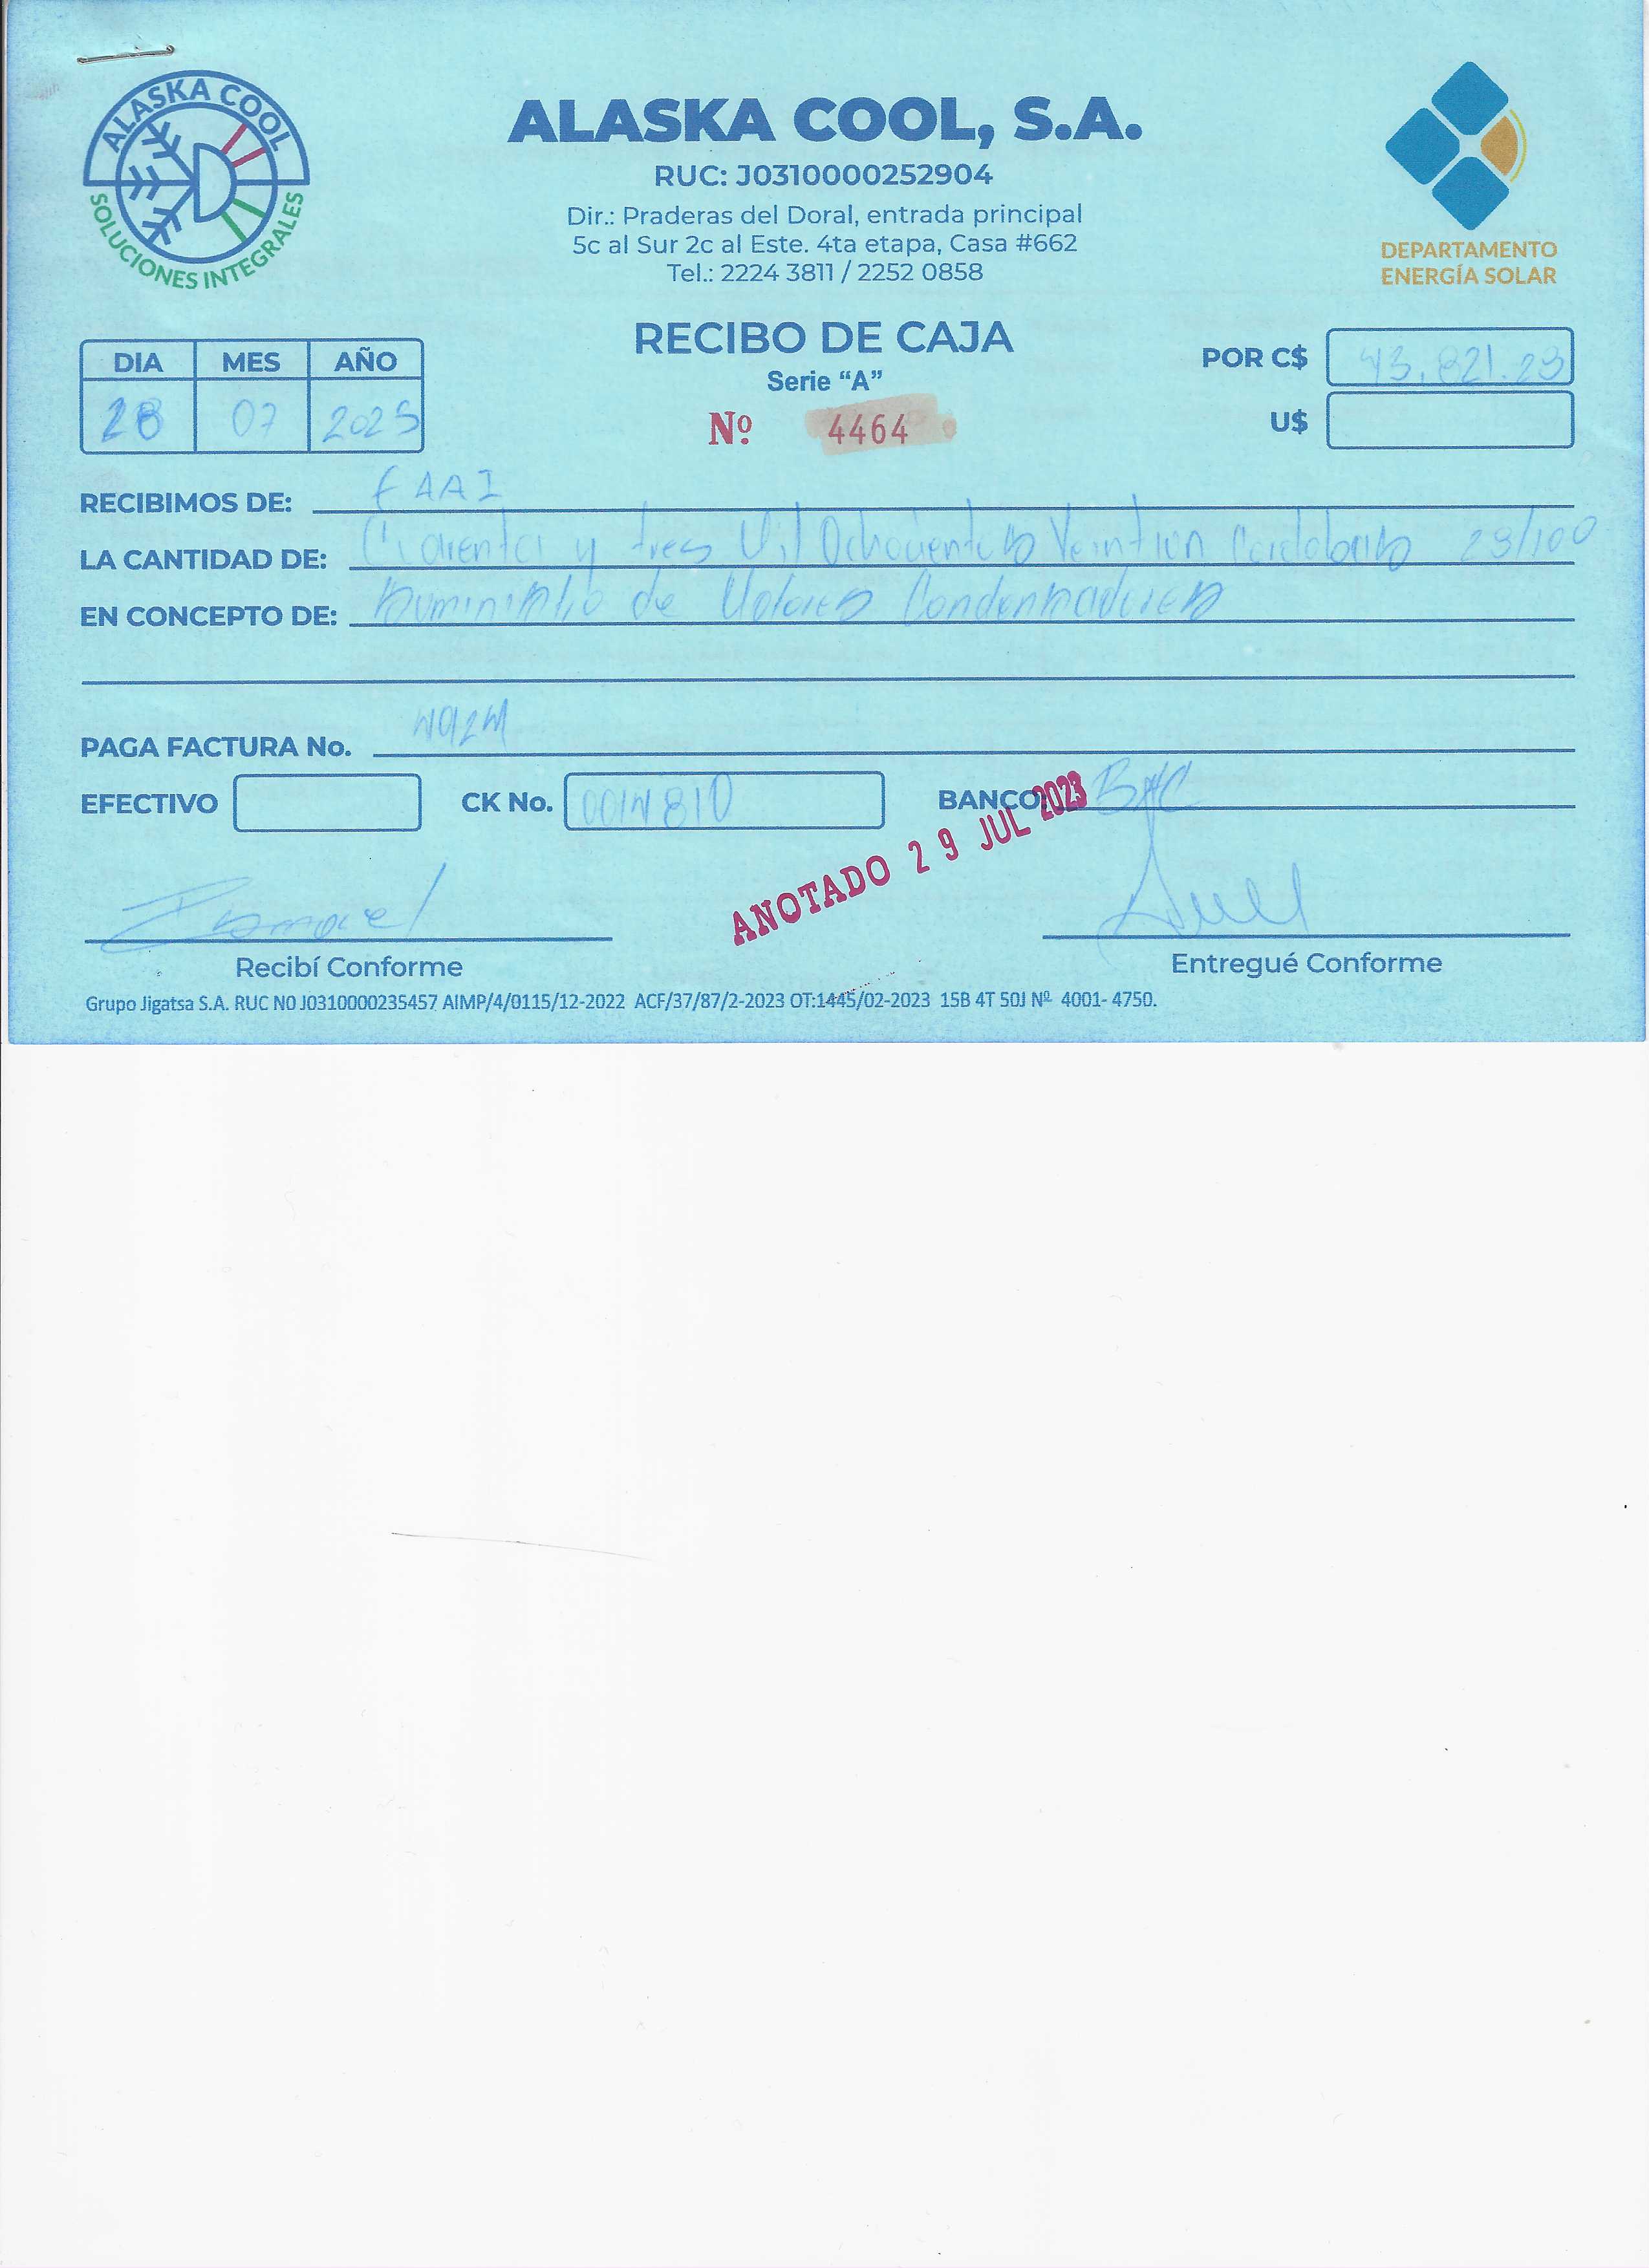 ALASKA COOL
SOLUCIONES INTEGRALES
ALASKA COOL, S.A.
RUC: J0310000252904
Dir.: Praderas del Doral, entrada principal
5c al Sur 2c al Este. 4ta etapa, Casa #662
Tel.: 2224 3811 / 2252 0858
DEPARTAMENTO
ENERGÍA SOLAR
RECIBO DE CAJA
Serie “A”
Nº 4464
DIA MES AÑO
28 07 2023
POR C$ 43,821.29
U$
RECIBIMOS DE: EAAI
LA CANTIDAD DE: Cuarenta y tres Mil Ochocientos Veintiun Cordobas 29/100
EN CONCEPTO DE: Suministro de Motores Condensadores
PAGA FACTURA No.
EFECTIVO CK No. 0014810 BANCO: BAC
ANOTADO 29 JUL 2023
Recibí Conforme
Entregué Conforme
Grupo Jigatsa S.A. RUC N0 J0310000235457 AIMP/4/0115/12-2022 ACF/37/87/2-2023 OT:1445/02-2023 15B 4T 50J Nº 4001- 4750.